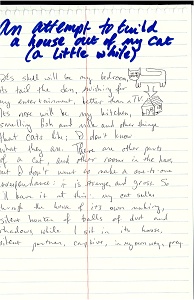 An attempt to build
a house out of my cat
(a little while)
Its skull will be my bedroom
its tail the den, swishing for
my entertainment, better than a TV.
Its nose will be my kitchen,
something fish and milk and other things
that cats like; I don't know
what they are. There are other parts
of a cat, and other rooms in the house
but I don't want to make a one-to-one
correspondence: it is strange and gross. So
I leave it at this: my cat sulks
through the house of its own making,
silent hunter of balls of dust and
shadows while I sit in its house,
silent poem, captive, in my own way, prey.